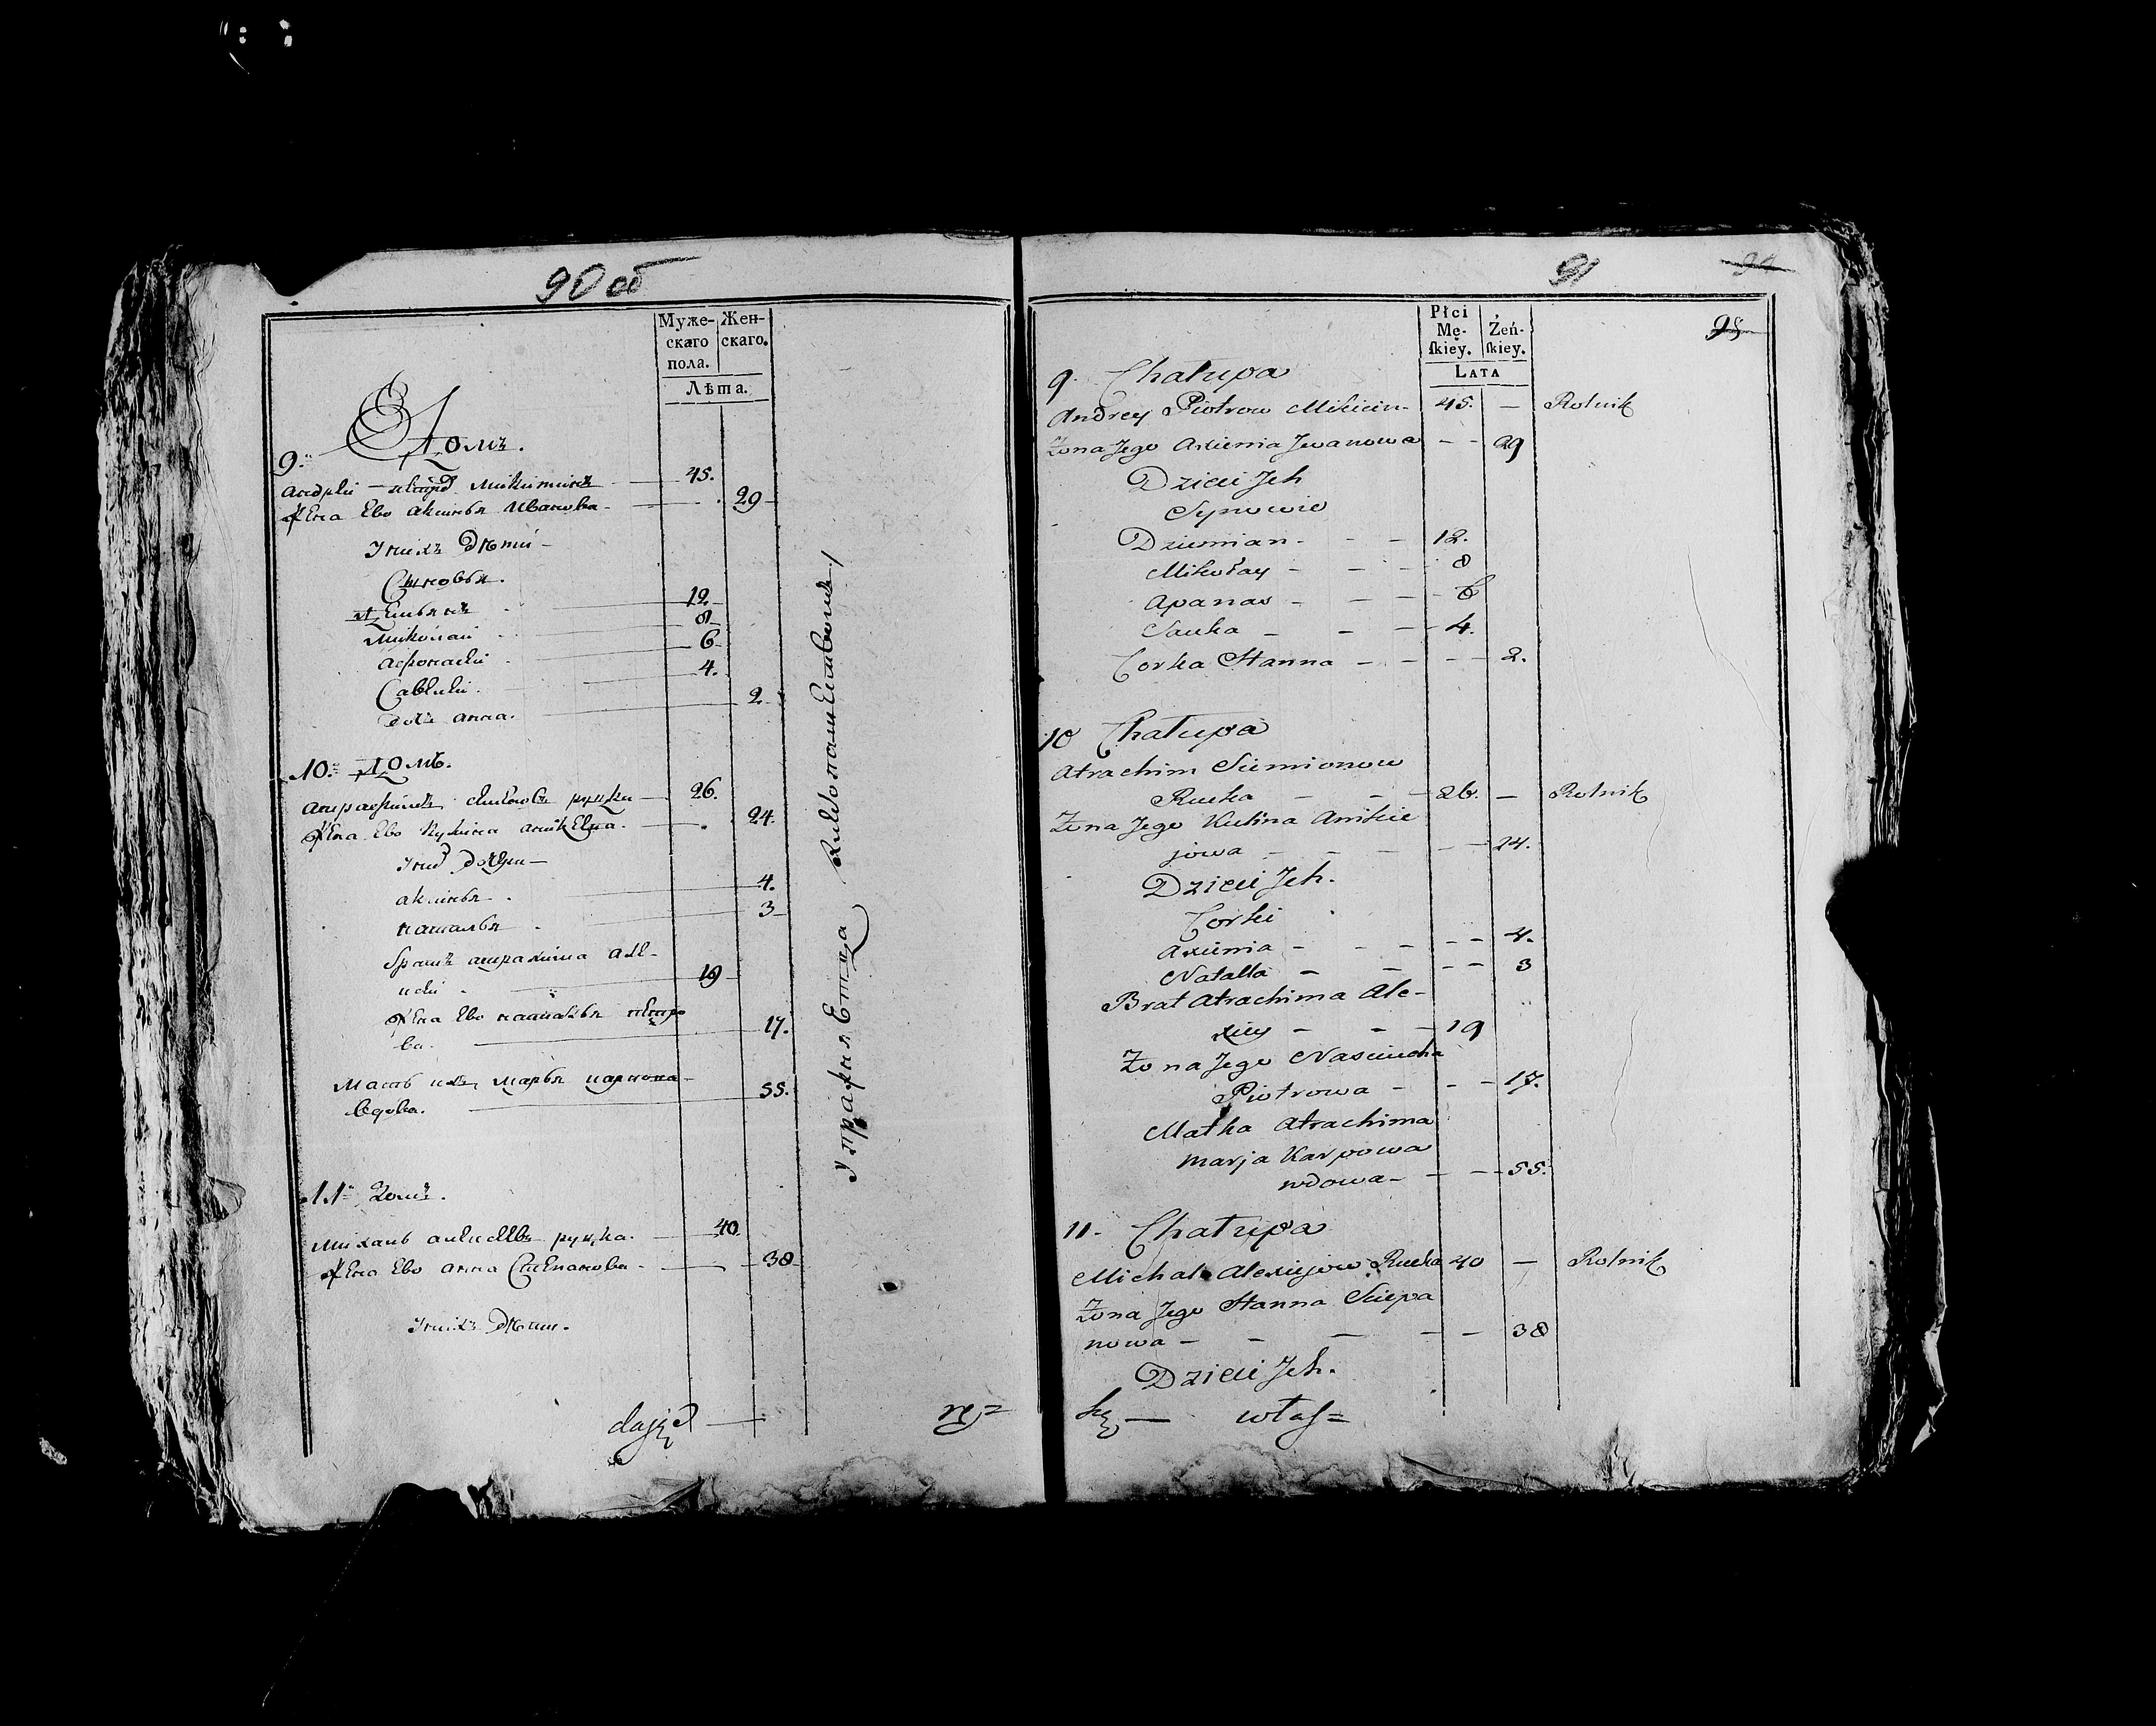 90 об
Муже- Жен-
скаго скаго.
пола.
Лѣта.
9. Домъ.
андрѣи петровъ микитинъ 45.
жена Ево аксинья Иванова 29
У нихъ Дѣти
Сыновья.
Демьянъ 12
миколаи 8
афонасеи 6
Савелеи 4.
дочь анна. 2
10. Домъ.
26.
жена Ево кулина аникеева 24.
У них дочери
аксинья 4.
наталья 3
братъ атрахима але-
ксеи 19
жена Ево настасья петро
ва. 17.
Мать ихъ марья карпова
вдова. 55.
11 Домъ.
Михаил алексеевъ руцка. 40
жена Ево анна Степанова 38
У нихъ Дѣти.
dający
ne=
91
94
95
Płci
Mę- Żeń-
ſkiey. ſkiey.
LATA
9. Chałupa
Andrey Piotrow Mikicin 45. — Rolnik
Żona Jego Axienia Jwanowa — 29
Dzieci Jch
Synowie
Dziemian — 12.
Mikołay — 8
Apanas — 6
Sauka — 4.
Corka Hanna — 2.
10 Chałupa
Atrachim Siemionow
Rucka — 26. — Rolnik
Żona Jego Kulina Anikie
jowa — 24.
Dzieci Jch.
Corki
Axienia — 4.
Natalla — 3
Brat Atrachima Ale-
xiey — 19
Żona Jego Nasciucha
Piotrowa — 17.
Matka Atrachima
Marja Karpowa
wdowa — 55.
11. Chałupa
Michał Alexiejow Rucka 40 — Rolnik
Żona Jego Hanna Sciepa
nowa — 38
Dzieci Jch.
kę — włas=